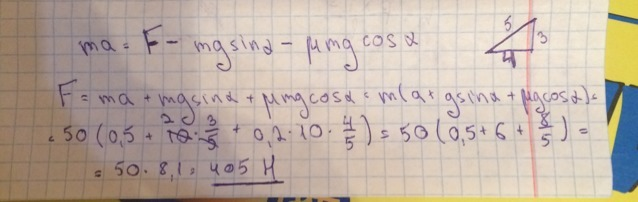 ma = F - mg sinα - μmg cosα
5
3
4
F = ma + mg sinα + μmg cosα = m(a + g sinα + μg cosα) =
= 50 (0,5 + 10 · 3/5 + 0,2 · 10 · 4/5) = 50 (0,5 + 6 + 8/5) =
2
= 50 · 8,1 = 405 Н